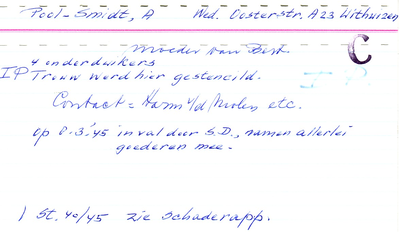 Pool-Smidt, A Ned. Oosterstr. A23 Uithuizen
Moeder van Bert.
C
4 onderduikers
IP Trouw werd hier gestencild.
Contact = Harm v/d Molen etc.
op 8.3.'45 inval door S.D., namen allerlei
goederen mee.
) St. 40/45 zie Schaderapp.